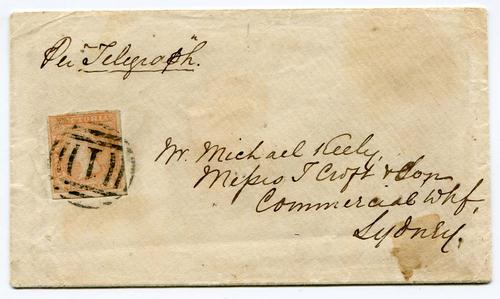 Per "Telegraph."
VICTORIA
1
Mr. Michael Keely,
Messrs T Croft & Son
Commercial Whf,
Sydney.